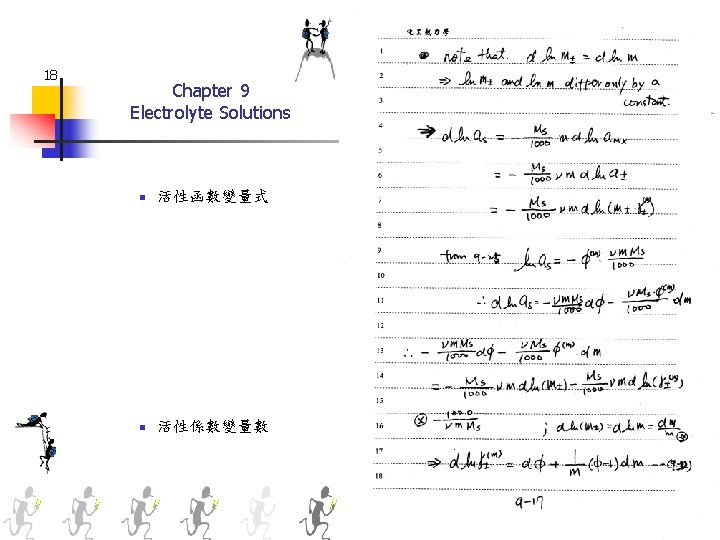 18
Chapter 9
Electrolyte Solutions
活性函數變量式
活性係數變量數
化工熱力學
1 note that. d ln m± = d ln m
2 ⇒ ln m± and ln m differ only by a
3 constant.
4 → d ln a_s = - M_s/1000 m d ln a_MX
5
6 = - M_s/1000 ν m d ln a±
7 = - M_s/1000 ν m d ln (m± γ±^(m))
8
9 from 9- ln a_s = - φ^(m) ν m M_s/1000
10
11 ∴ d ln a_s = - ν m M_s/1000 dφ - ν M_s φ^(m)/1000 dm
12
13 ∴ - ν m M_s/1000 dφ - ν M_s/1000 φ^(m) dm
14 = - M_s/1000 ν m d ln (m±) - M_s/1000 ν m d ln (γ±^(m))
15
16 ⊗ - 1000/ν m M_s ; d ln (m±) = d ln m = dm/m
17 ⇒ d ln γ±^(m) = dφ + 1/m (φ-1) dm
18
9-17